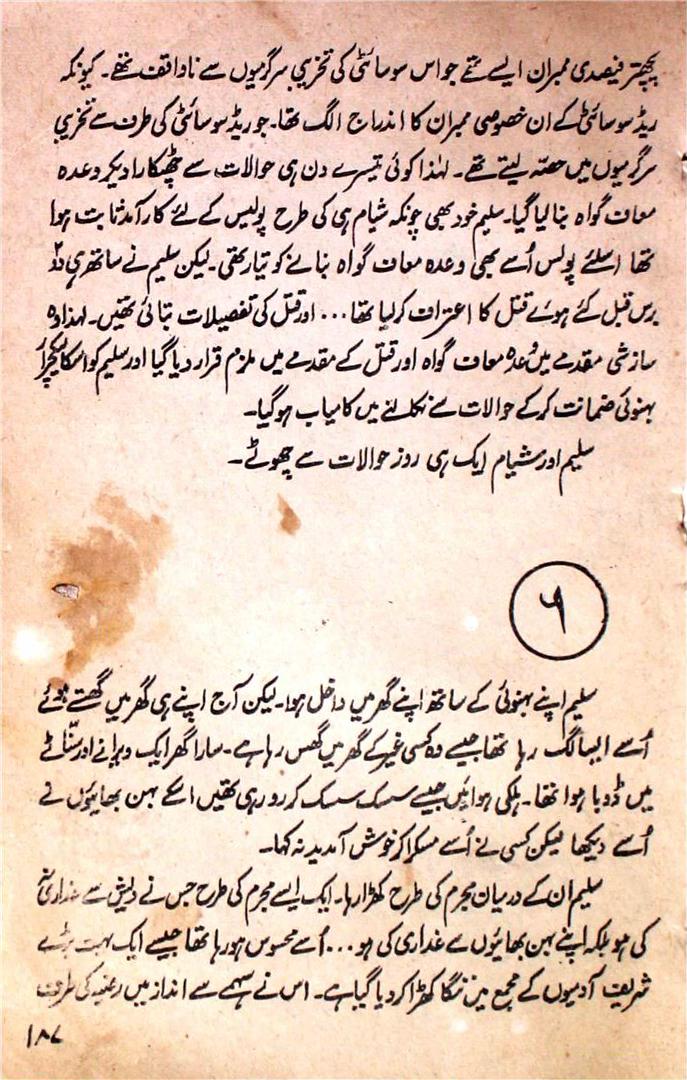 پچھتر فیصدی ممبران ایسے تھے جو اس سوسائٹی کی تخریبی سرگرمیوں سے ناواقف تھے۔ کیونکہ
ریڈ سوسائٹی کے ان خصوصی ممبران کا اندراج الگ تھا۔ جو ریڈ سوسائٹی کی طرف سے تخریبی
سرگرمیوں میں حصہ لیتے تھے۔ لہٰذا کوئی تیسرے دن ہی حوالات سے چھٹکارا دیکر وعدہ
معاف گواہ بنا لیا گیا۔ سلیم خود بھی چونکہ شیام ہی کی طرح پولیس کے لئے کارآمد ثابت ہوا
تھا اسلئے پولس اُسے بھی وعدہ معاف گواہ بنانے کو تیار تھی۔ لیکن سلیم نے ساتھ ہی دو
برس قبل کئے ہوئے قتل کا اعتراف کر لیا تھا... اور قتل کی تفصیلات بتائی تھیں۔ لہذا وہ
سازشی مقدمے میں وعدہ معاف گواہ اور قتل کے مقدمے میں ملزم قرار دیا گیا اور سلیم کو اسکا لیکچرار
بہنوئی ضمانت کر کے حوالات سے نکلنے میں کامیاب ہو گیا۔
سلیم اور شیام ایک ہی روز حوالات سے چھوٹے۔
۶
سلیم اپنے بہنوئی کے ساتھ اپنے گھر میں داخل ہوا۔ لیکن آج اپنے ہی گھر میں گھستے ہوئے
اُسے ایسا لگ رہا تھا جیسے وہ کسی غیر کے گھر میں گھس رہا ہے۔ سارا گھر ایک ویرانے اور سنّاٹے
میں ڈوبا ہوا تھا۔ ہلکی ہوائیں جیسے سسک سسک کر رو رہی تھیں اسکے بہن بھائیوں نے
اُسے دیکھا لیکن کسی نے اُسے مسکرا کر خوش آمدید نہ کہا۔
سلیم ان کے درمیان مجرم کی طرح کھڑا رہا۔ ایک ایسے مجرم کی طرح جس نے دیش سے غداری نہ
کی ہو بلکہ اپنے بہن بھائیوں سے غداری کی ہو... اُسے محسوس ہو رہا تھا جیسے ایک بہت بڑے
شریف آدمیوں کے مجمع میں ننگا کھڑا کر دیا گیا ہے۔ اس نے سہمے سے انداز میں رضیہ کی طرف
۱۸۷